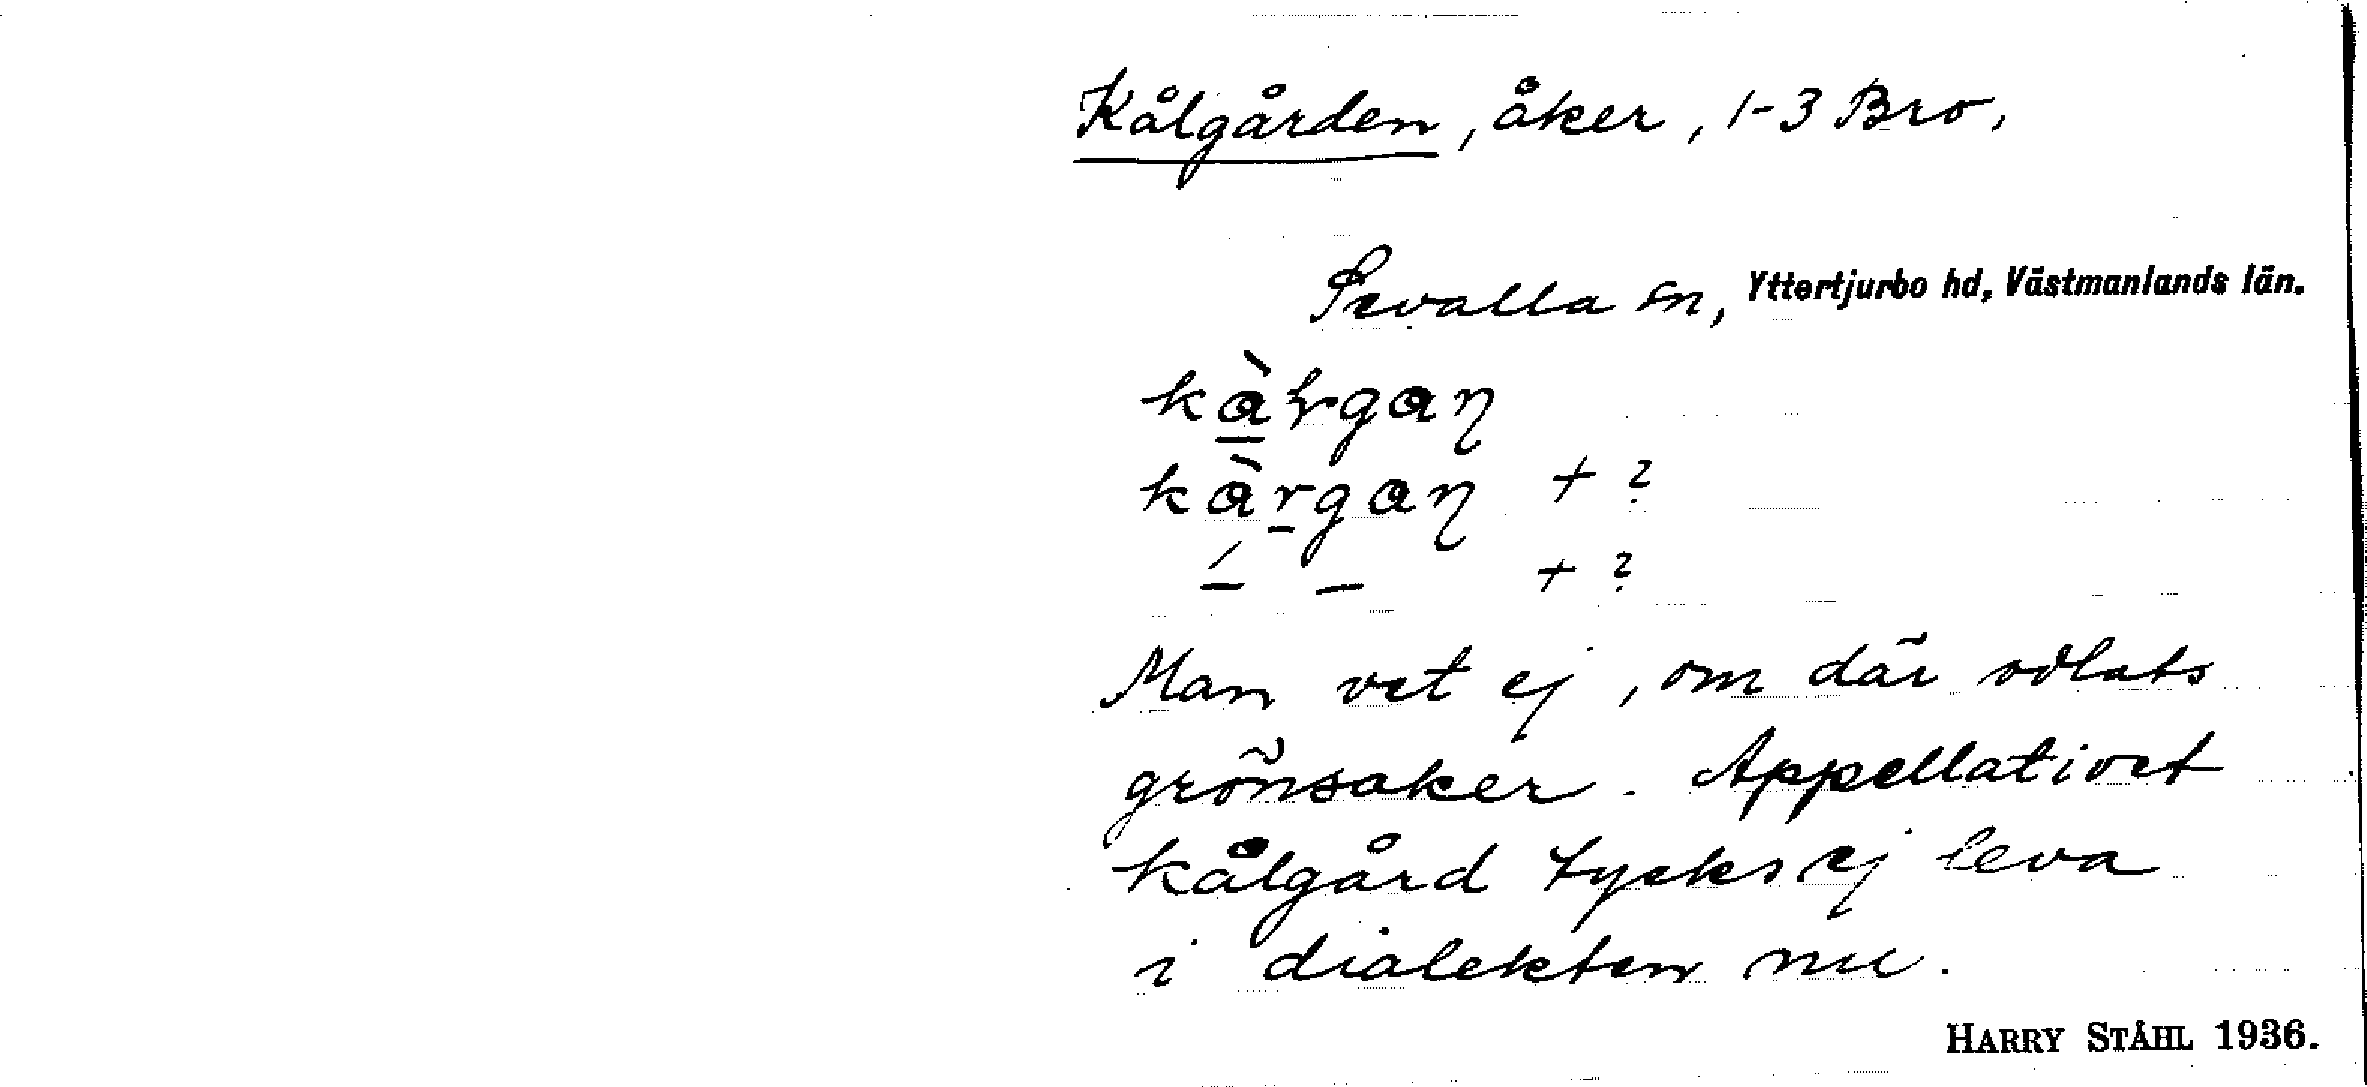 Kålgården, åker, 1-3 Bro,
Sevalla sn, Yttertjurbo hd, Västmanlands län.
kàrgaɳ
kàrgaɳ + ?
´ – + ?
Man vet ej, om där odlats
grönsaker. Appellativet
kålgård tycks ej leva
i dialekten nu.
HARRY STÅHL 1936.